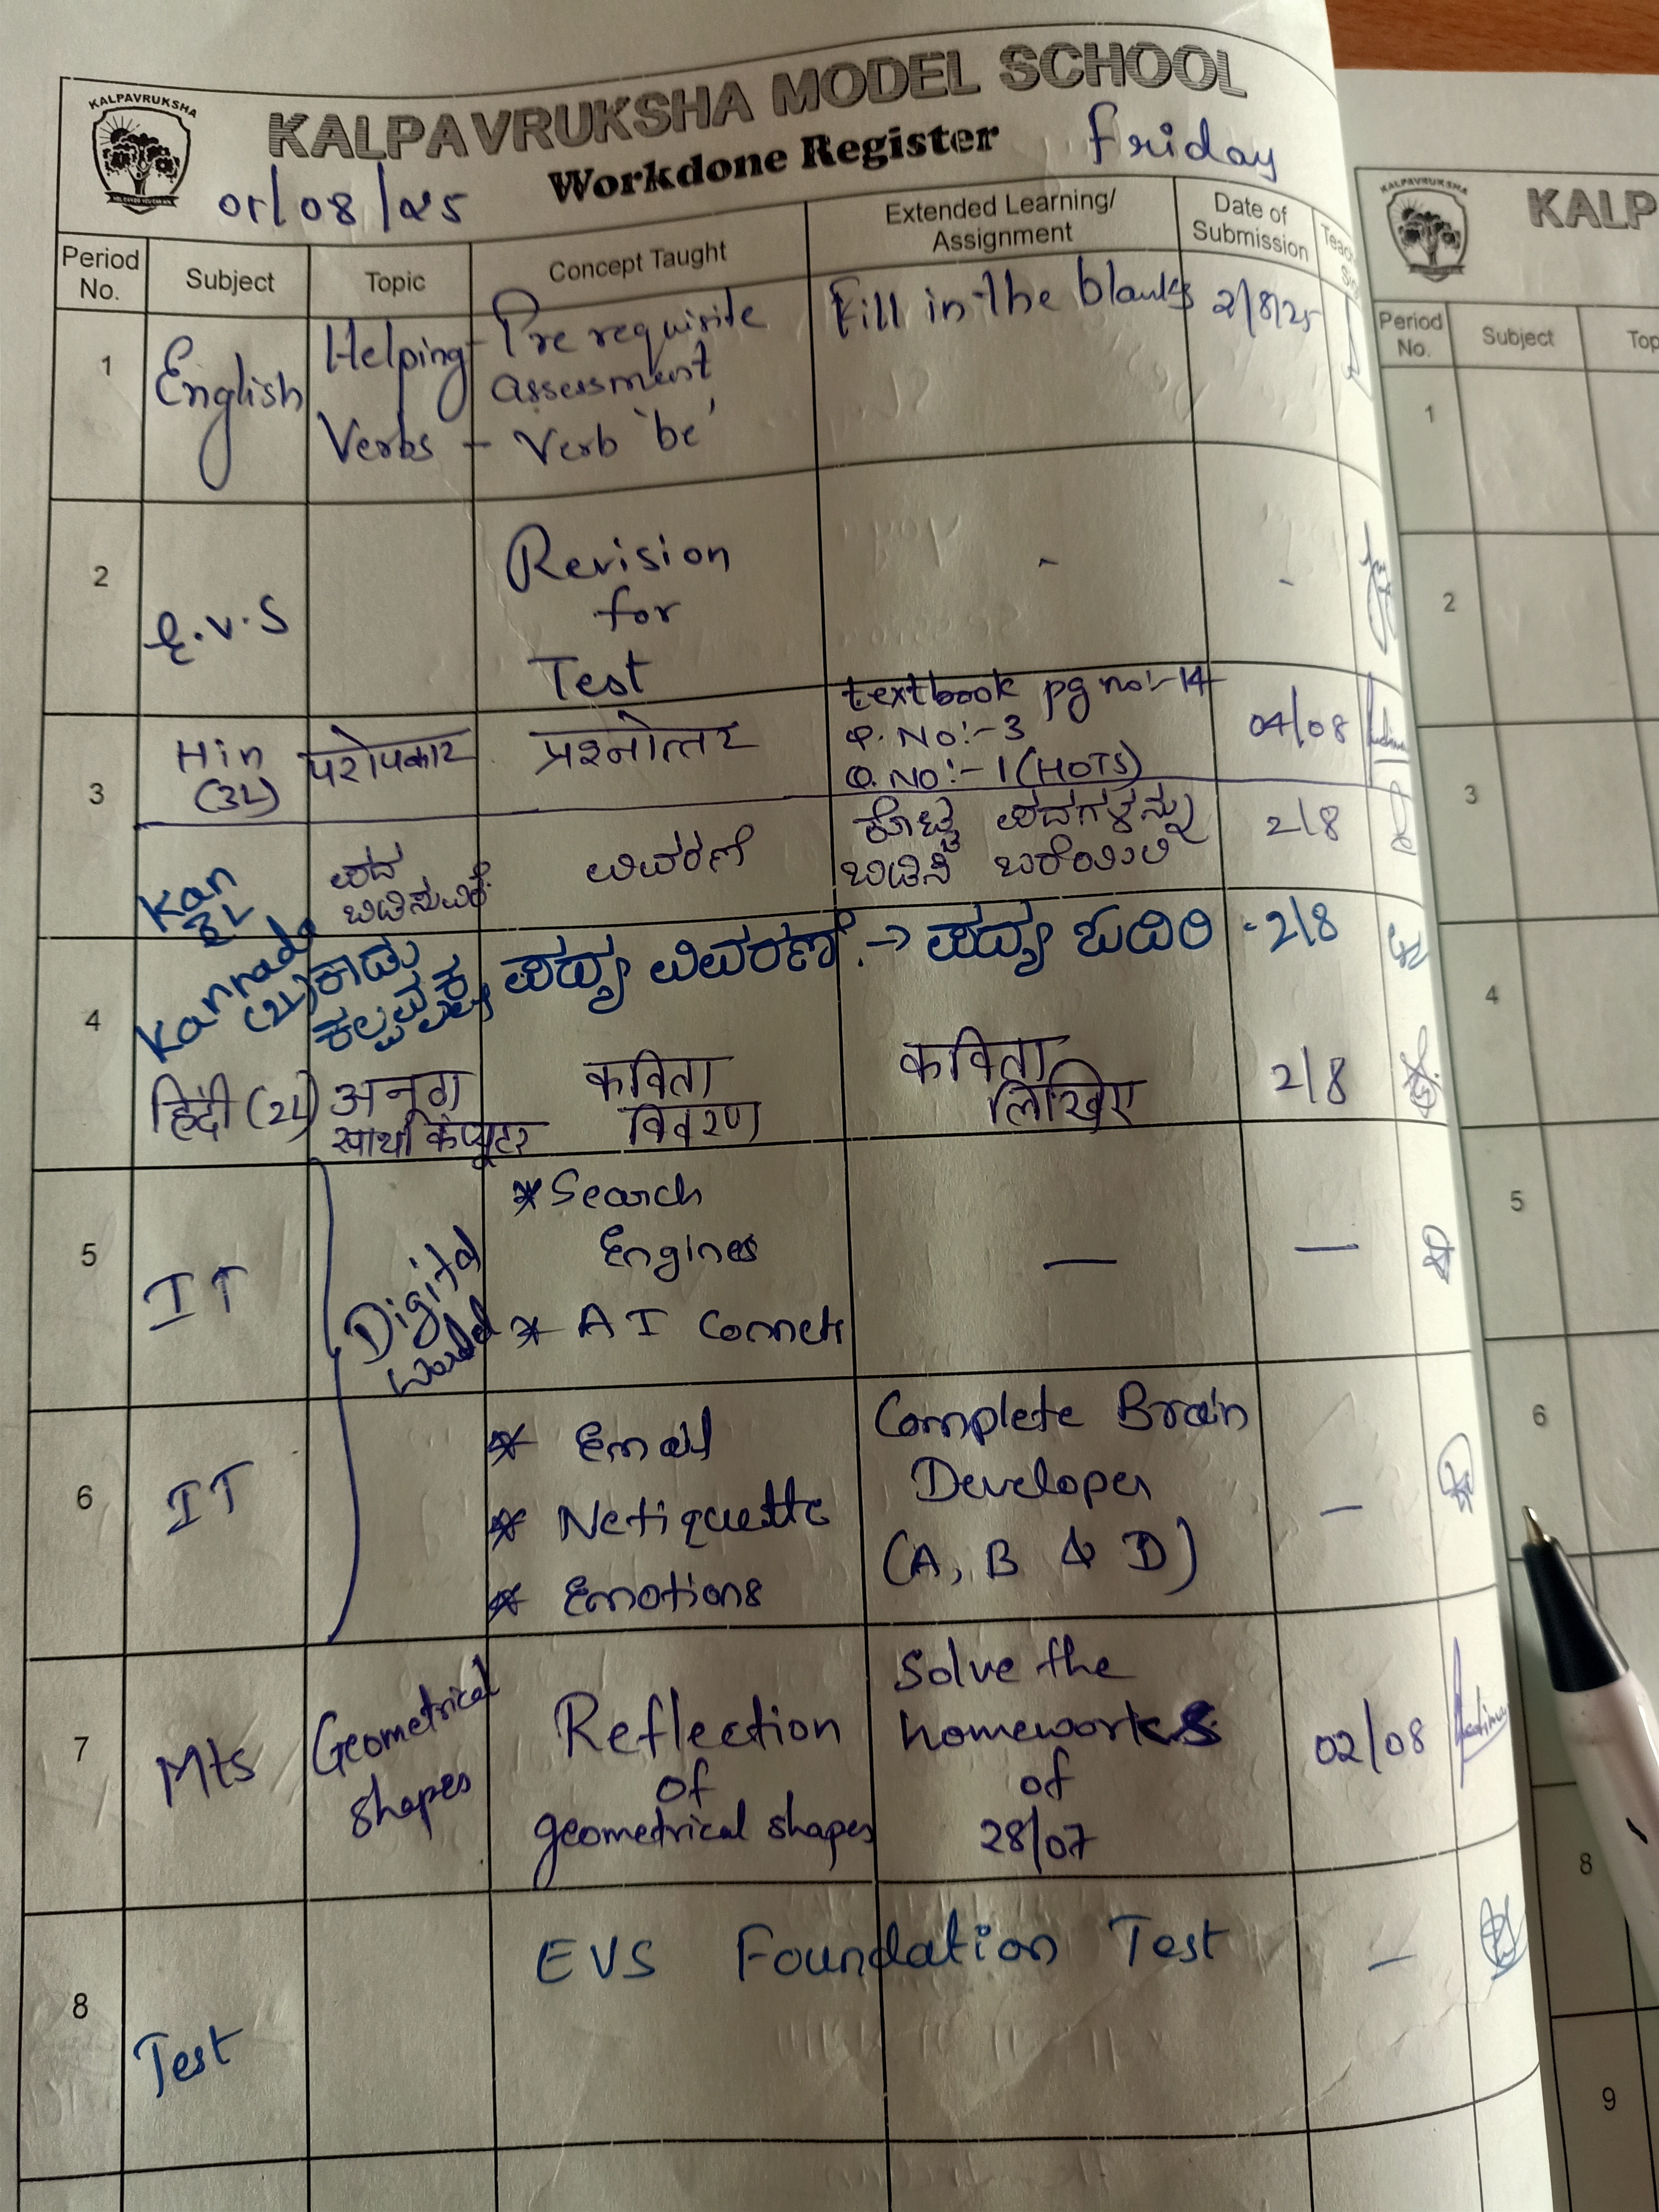 KALPAVRUKSHA
KALPAVRUKSHA MODEL SCHOOL
Workdone Register
Friday
01/08/25
Period No.
Subject
Topic
Concept Taught
Extended Learning/
Assignment
Date of
Submission
1
English
Helping
Verbs
- Pre requisite
assessment
- Verb 'be'
Fill in the blanks
2/8/25
2
E.V.S
Revision
for
Test
-
-
3
Hin
(3L)
परोपकार
प्रश्नोत्तर
textbook pg no:- 14
Q. No:- 3
Q. No:- 1 (HOTS)
04/08
Kan
3L
ಪದ
ಬಿಡಿಸುವಿಕೆ
ವಿವರಣೆ
ಕೊಟ್ಟ ಪದಗಳನ್ನು
ಬಿಡಿಸಿ ಬರೆಯಿರಿ
2/8
4
Kannada
(2L)
ಕಾಡು
ಕಲ್ಪವೃಕ್ಷ
ಪದ್ಯ ವಿವರಣೆ. → ಪದ್ಯ ಓದಿರಿ - 2/8
हिंदी (2L)
अनूठा
साथी कंप्यूटर
कविता
विवरण
कविता
लिखिए
2/8
5
IT
Digital
World
* Search
Engines
* AI Connect
—
—
6
IT
* Email
* Netiquette
* Emotions
Complete Brain
Developer
(A, B & D)
—
7
Mts
Geometrical
shapes
Reflection
of
geometrical shapes
Solve the
homeworks
of
28/07
02/08
8
Test
EVS Foundation Test
—
KALPAVRUKSHA
KALP
Period
No.
Subject
Top
1
2
3
4
5
6
8
9